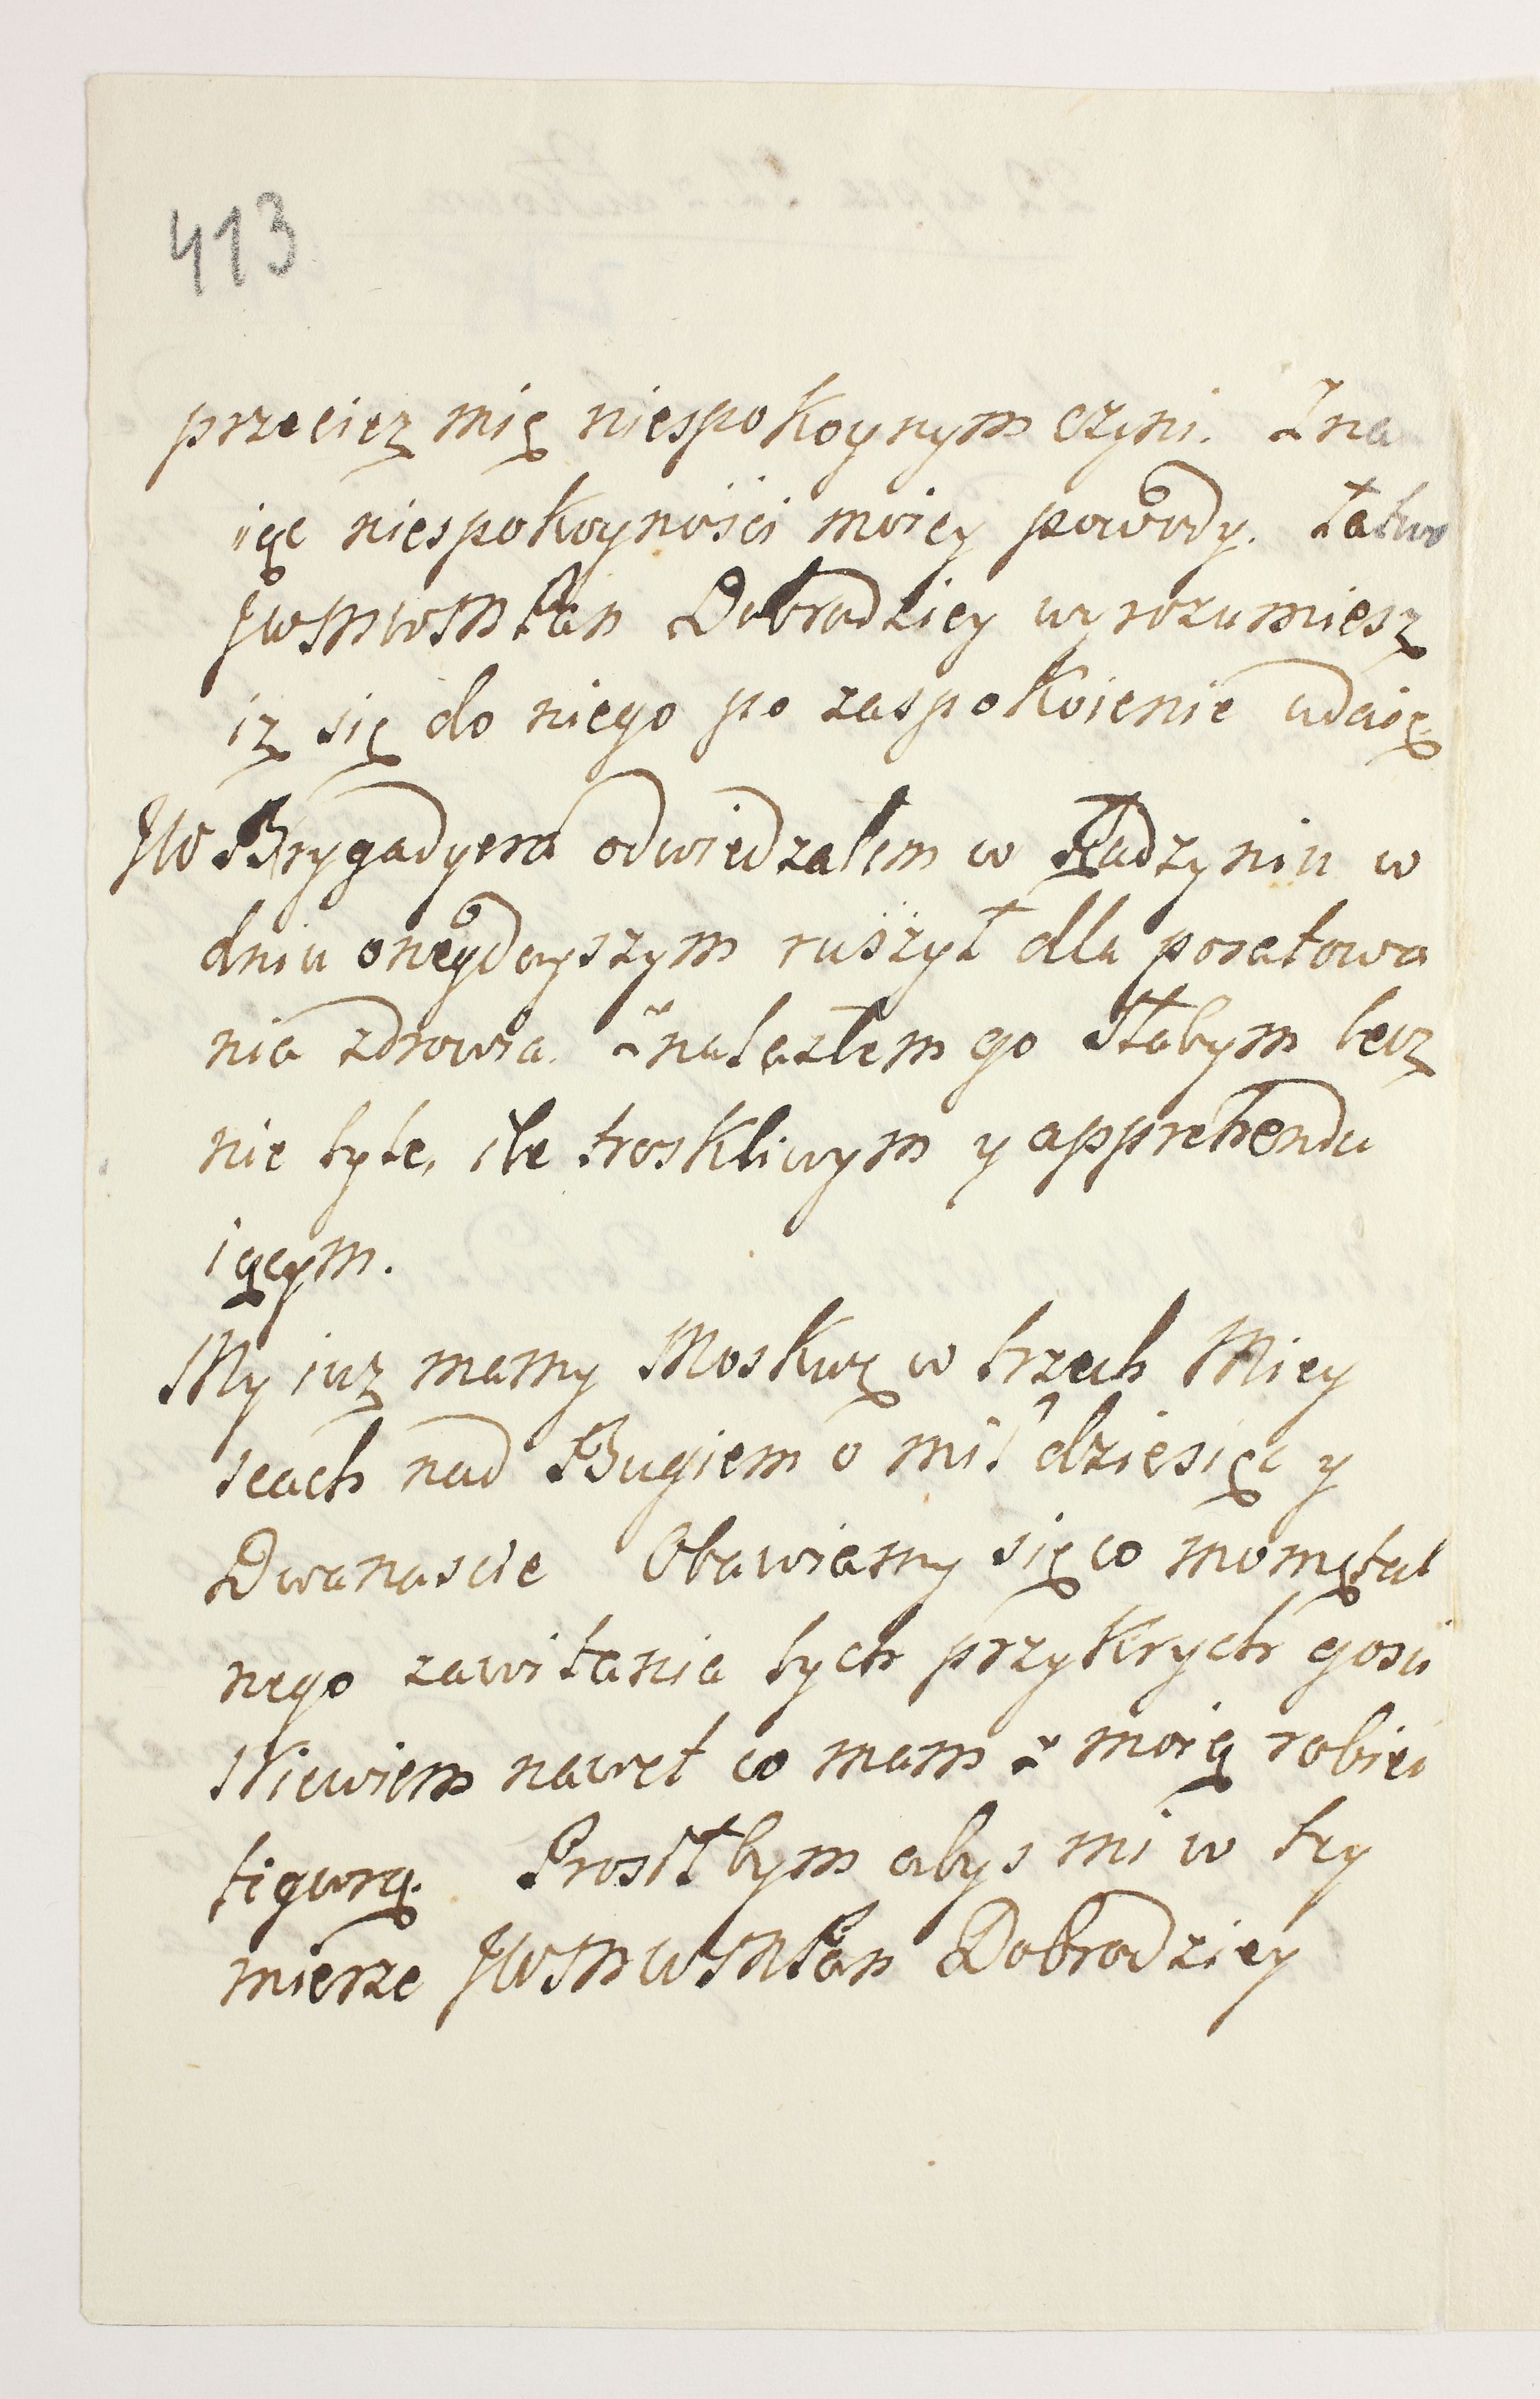 413
przeciez mię niespokoynym czyni. Zna
iąc niespokoyności moiey powody. Łatwo
JWMWMPan Dobrodziey wyrozumiesz
iz się do niego po zaspokoienie udaię.
JW Brygadyera odwiedzałem w Radzyniu w
dniu onegdayszym ruszył dla poratowa
nia zdrowia. Znalazłem go słabym lecz
nie tyle, ile troskliwym y apprehendu
iącym.
My iuz mamy Moskwę w trzech Miey
scach nad Bugiem o mil dziesięć y
Dwanascie Obawiamy się co momętal
nego zawitania tych przykrych gosci
Niewiem nawet co mam z moią robić
figurą. Prosiłbym abys mi w tey
mierze JWMWMPan Dobrodziey